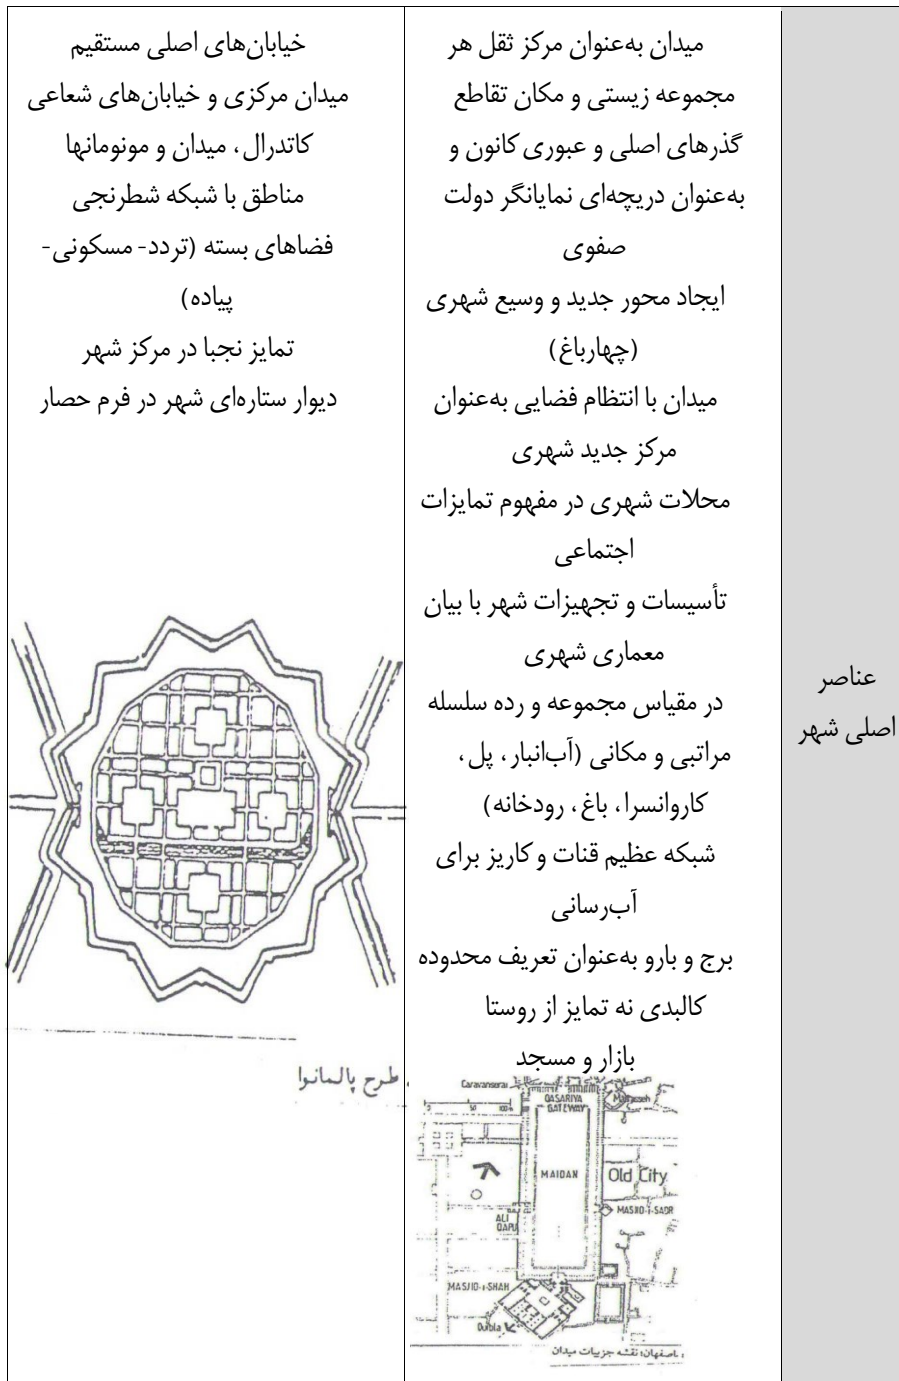 عناصر
اصلی شهر
میدان به‌عنوان مرکز ثقل هر
مجموعه زیستی و مکان تقاطع
گذرهای اصلی و عبوری کانون و
به‌عنوان دریچه‌ای نمایانگر دولت
صفوی
ایجاد محور جدید و وسیع شهری
(چهارباغ)
میدان با انتظام فضایی به‌عنوان
مرکز جدید شهری
محلات شهری در مفهوم تمایزات
اجتماعی
تأسیسات و تجهیزات شهر با بیان
معماری شهری
در مقیاس مجموعه و رده سلسله
مراتبی و مکانی (آب‌انبار، پل،
کاروانسرا، باغ، رودخانه)
شبکه عظیم قنات و کاریز برای
آب‌رسانی
برج و بارو به‌عنوان تعریف محدوده
کالبدی نه تمایز از روستا
بازار و مسجد
Caravanserai
QASARIYA
GATEWAY
Madraseh
0 50 100m
MAIDAN
Old City
ALI
QAPU
MASJID-I-SADR
MASJID-I-SHAH
Quibla
اصفهان؛ نقشه جزییات میدان
خیابان‌های اصلی مستقیم
میدان مرکزی و خیابان‌های شعاعی
کاتدرال، میدان و مونومانها
مناطق با شبکه شطرنجی
فضاهای بسته (تردد- مسکونی-
پیاده)
تمایز نجبا در مرکز شهر
دیوار ستاره‌ای شهر در فرم حصار
طرح پالمانوا